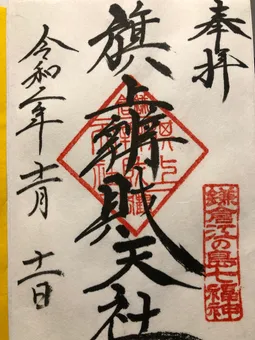 奉拝
旗上弁財天社
令和二年十二月十二日
鎌倉江の島七福神